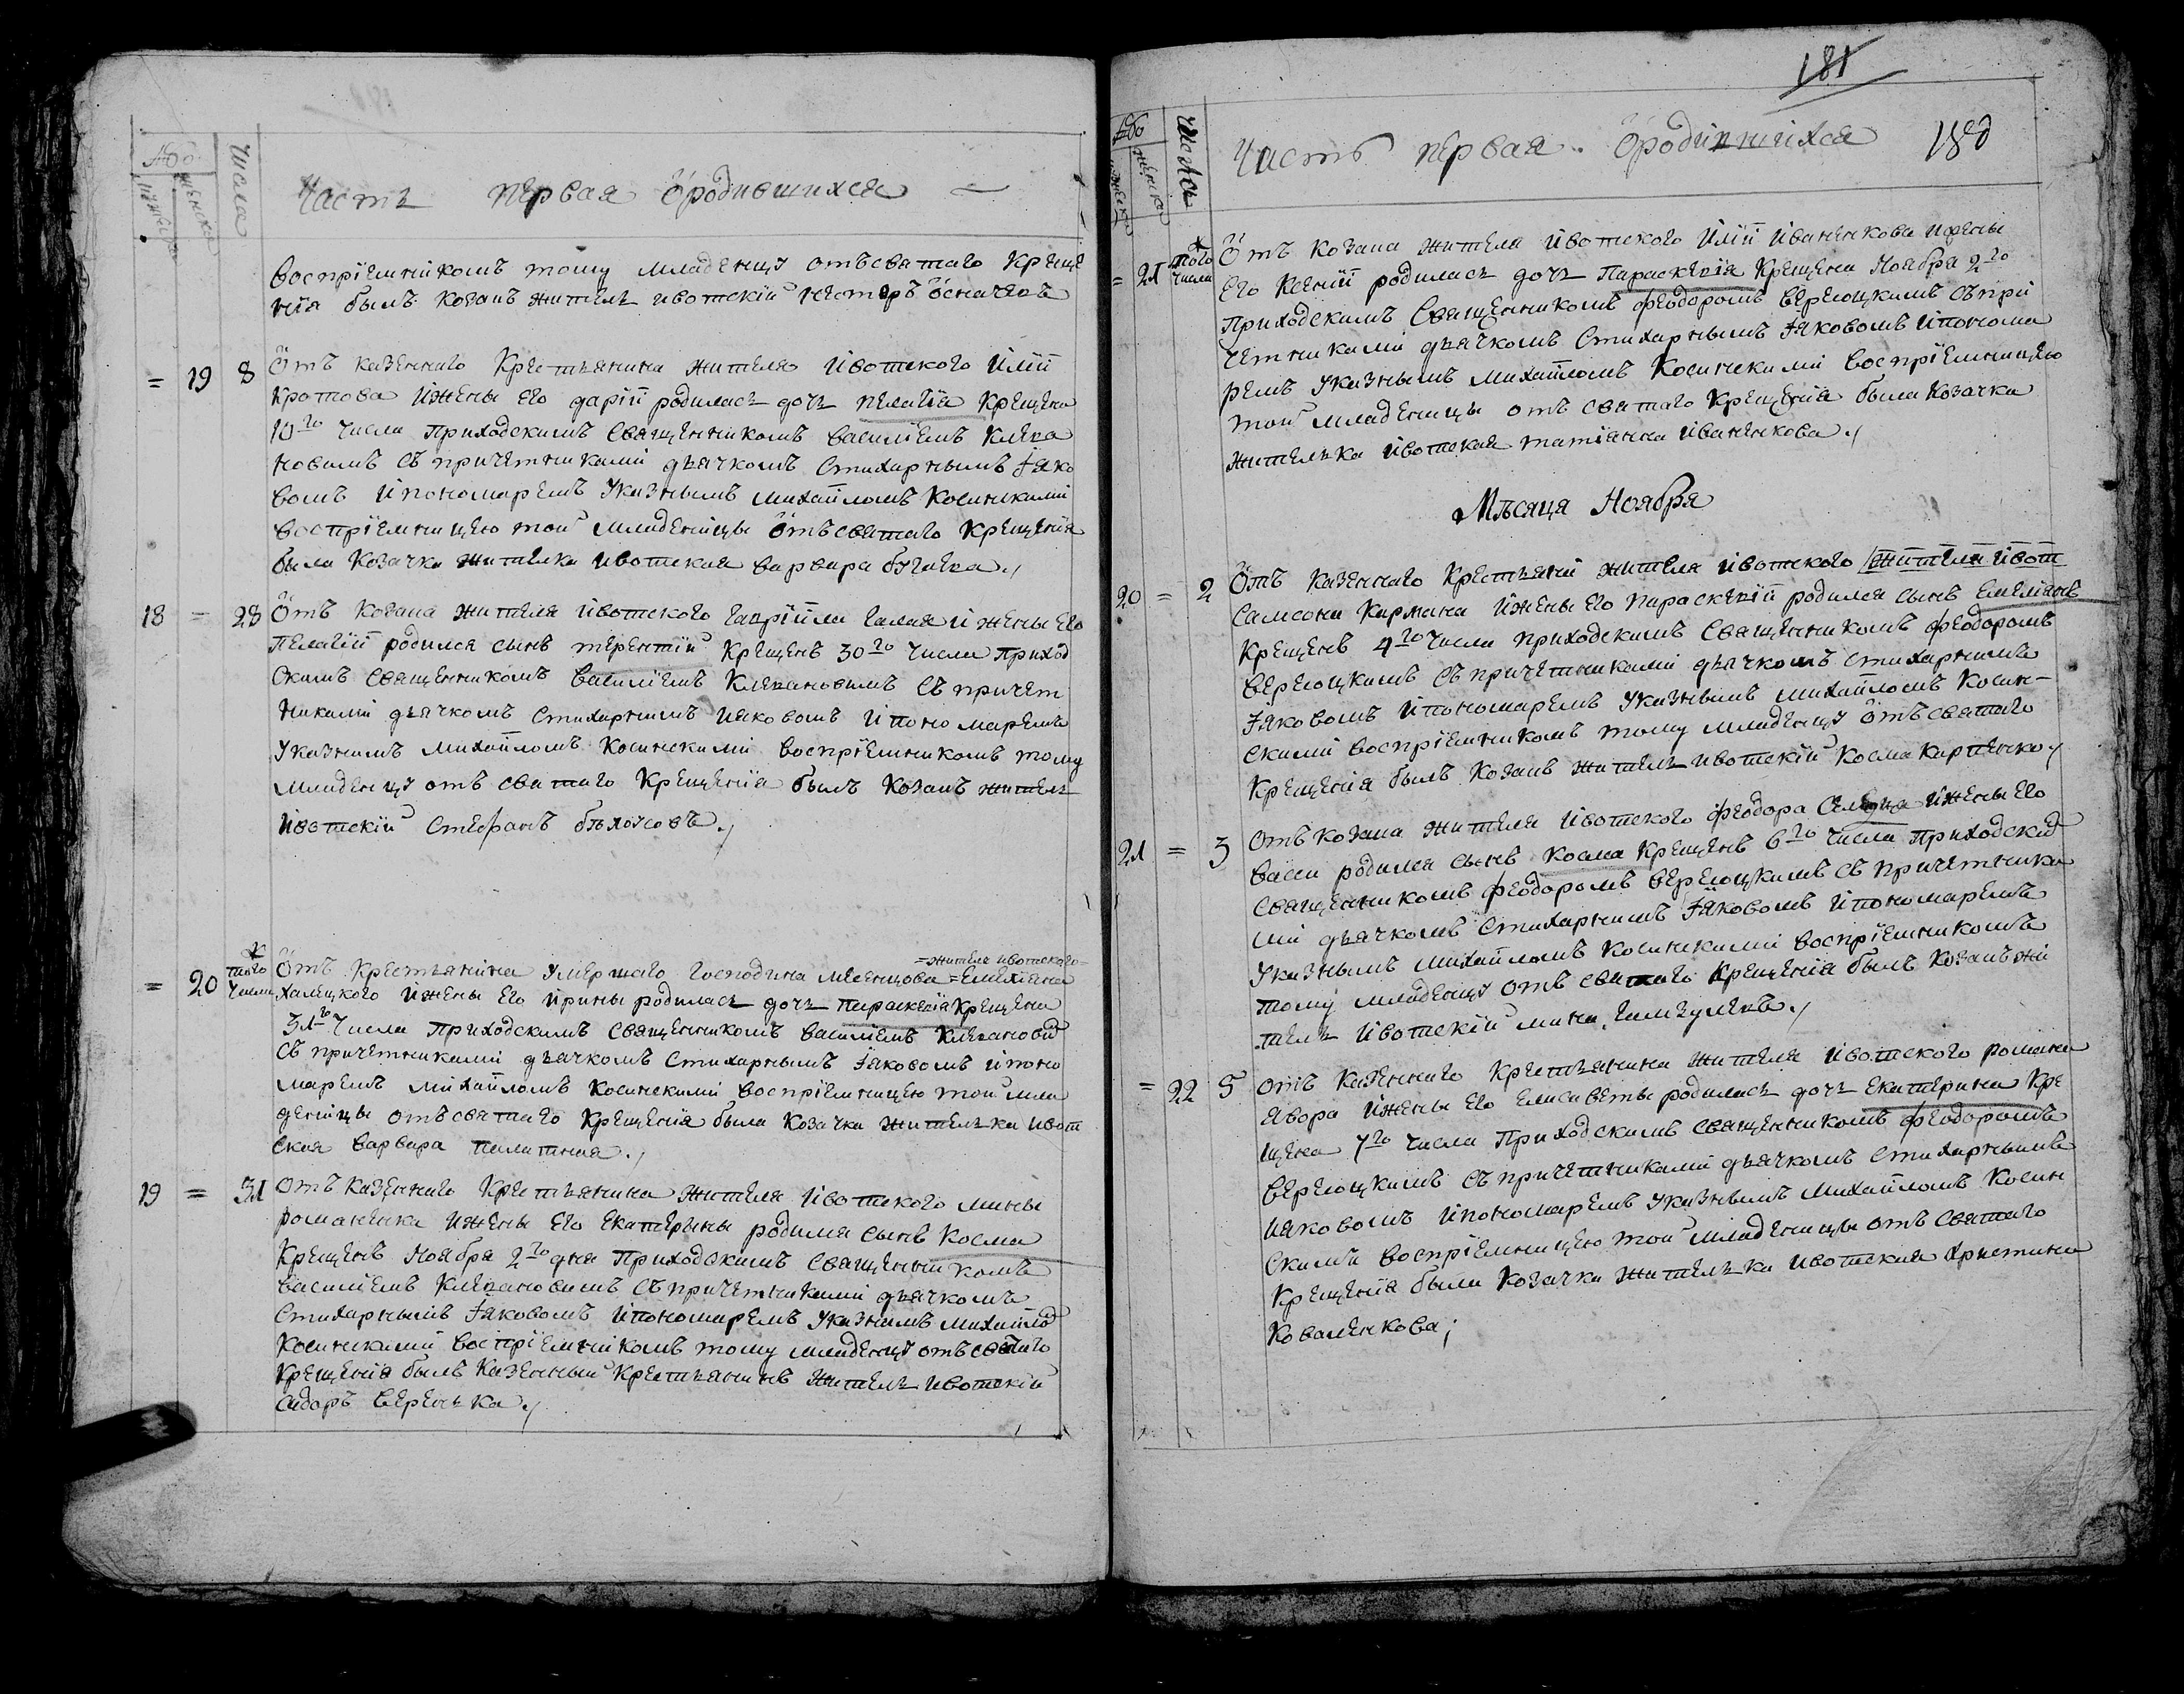 Число
Часть первая о родившихся
воспрїемникомъ тому младенцу отъ святаго Креще
нїя былъ козакъ житель ивотскїй Нестеръ Осначовъ
= 19 8 Отъ казеннаго Крестьянина жителя Ивотского Илїи
Кротова и жены его дарїи родилась дочь пелагїя Крещена
10го числа Приходскимъ Священникомъ василїемъ Клева
новымъ съ причетниками дьячкомъ Стихарнымъ Iяко
вомъ и пономаремъ Указнымъ Михайломъ Косинскими
воспрїемницею той младеницы отъ святаго Крещенїя
была Козачка жителка ивотская варвара
18 = 28 Отъ козака жителя ивотского гаврїила галая и жены его
Пелагїи родился сынъ терентїй Крещенъ 30го числа приход
скимъ священникомъ василїемъ Клевановымъ съ причет
никами дьячкомъ Стихарнымъ Иаковомъ и пономаремъ
Указнымъ Михайломъ Косинскими воспрїемникомъ тому
младенцу отъ святаго Крещенїя былъ Козакъ житель
ивотскїй Стефанъ бѣлоусовъ.
= 20 того числа Отъ Крестьянина умершаго господина
=жителя ивотского= =Емелїяна
халецкого и жены его ирины родилась дочь параскевїя Крещена
31го числа Приходскимъ Священникомъ василїемъ Клевановы
съ причетниками дьячкомъ стихарнымъ Iяковомъ и поно
маремъ михайломъ Косинскими воспрїемницею той мла
деницы отъ святаго Крещенїя была Козачка жителька ивот
ская варвара
19 = 31 Отъ казеннаго Крестьянина жителя ивотского мины
романенка и жены его екатерины родился сынъ Косма
Крещенъ Ноября 2го дня Приходскимъ Священникомъ
василїемъ Клевановымъ съ причетниками дьячкомъ
Стихарнымъ Iяковомъ и пономаремъ Указнымъ Михайло
Косинскими воспрїемникомъ тому младенцу отъ святаго
Крещенїя былъ Казенный Крестьянинъ житель ивотскїй
сидоръ веренька.
181
Число
Часть первая о родившихся 180
= 21 того числа Отъ козака жителя ивотского Илїи иваненкова и жены
его Ксенїи родилась дочь Параскевїя Крещена Ноября 2го
Приходскимъ Священникомъ феодоромъ верелоцкимъ съ при
четниками дьячкомъ Стихарнымъ Iяковомъ и понома
ремъ Указнымъ Михайломъ Косинскими воспрїемницею
той младеницы отъ святаго Крещенїя была Козачка
жителька ивотская татїянна иваненкова.
Мѣсяца Ноября
20 = 2 Отъ казеннаго Крестьяни жителя ивотского жителя ивот
самсона Кармана и жены его параскевїи родился сынъ Емелїянъ
Крещенъ 4го числа приходскимъ Священникомъ феодоромъ
верелоцкимъ съ причетниками дьячкомъ стихарнымъ
Iяковомъ и пономаремъ Указнымъ михайломъ Косин-
скими воспрїемникомъ тому младенцу отъ святаго
Крещенїя былъ Козакъ житель ивотскїй Косма Карпенко.
21 = 3 Отъ козака жителя ивотского феодора и жены его
васси родился сынъ Косма Крещенъ 6го числа Приходски
священникомъ феодоромъ верелоцкимъ съ причетника
ми дьячкомъ Стихарнымъ Iяковомъ и пономаремъ
Указнымъ михайломъ Косинскими воспрїемникомъ
тому младенцу отъ святаго Крещенїя былъ Козакъ жи
тель ивотскїй мина
= 22 5 Отъ казеннаго Крестьянина жителя ивотского романа
явора и жены его елисаветы родилась дочь Екатерина Кре
щена 7го числа Приходскимъ священникомъ феодоромъ
верелоцкимъ съ причетниками дьячкомъ Стихарнымъ
иаковомъ и пономаремъ указнымъ Михайломъ Косин
скими воспрїемницею той младеницы отъ святаго
Крещенїя была Козачка жителька ивотская Христина
Коваленкова;